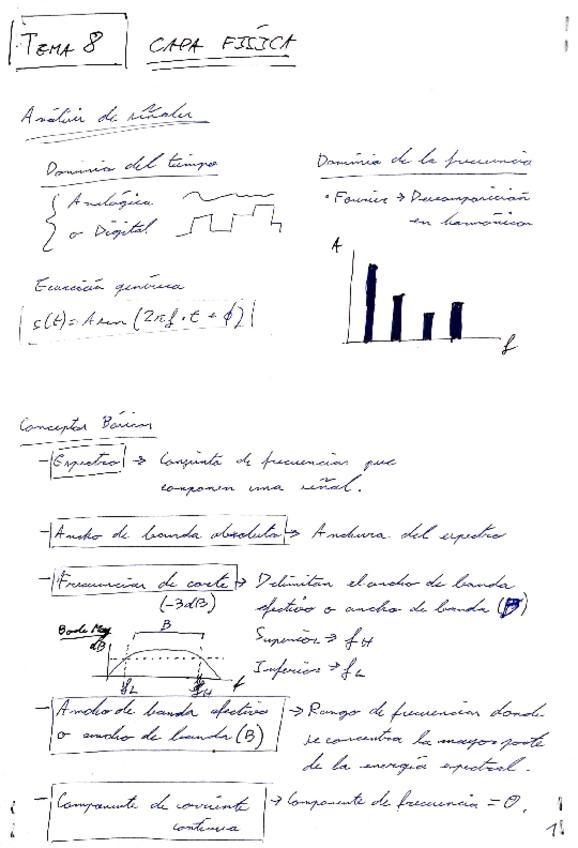 TEMA 8 CAPA FÍSICA
Análisis de señales
Dominio del tiempo
Analógica
o Digital
Ecuación genérica
s(t) = A sen (2πf · t + ϕ)
Dominio de la frecuencia
• Fourier → Descomposición
en harmónicos
A
f
Conceptos Básicos
- Espectro → Conjunto de frecuencias que
componen una señal.
- Ancho de banda absoluto → Anchura del espectro
- Frecuencias de corte → Delimitan el ancho de banda
(-3dB) efectivo o ancho de banda (B)
Superior → fH
Inferior → fL
Bode Mag
dB
B
fL fH f
- Ancho de banda efectivo → Rango de frecuencias donde
o ancho de banda (B) se concentra la mayor parte
de la energía espectral.
- Componente de corriente → Componente de frecuencia = 0.
continua
1